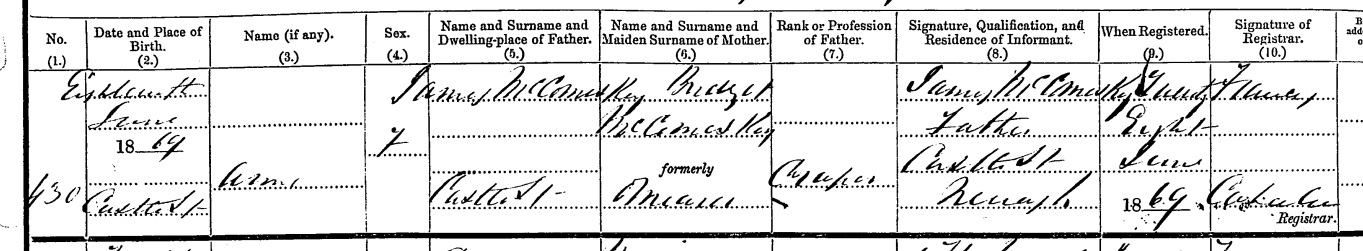 No.
(1.)
Date and Place of
Birth.
(2.)
Name (if any).
(3.)
Sex.
(4.)
Name and Surname and
Dwelling-place of Father.
(5.)
Name and Surname and
Maiden Surname of Mother.
(6.)
Rank or Profession
of Father.
(7.)
Signature, Qualification, and
Residence of Informant.
(8.)
When Registered.
(9.)
Signature of
Registrar.
(10.)
430
Eighteenth
June
1869
Castle St
Anne
F
James McComeskey
Castle St
Bridget
McComeskey
formerly
Meara
Draper
James McComeskey
Father
Castle St
Nenagh
Twenty
Eight
June
1869
Registrar.